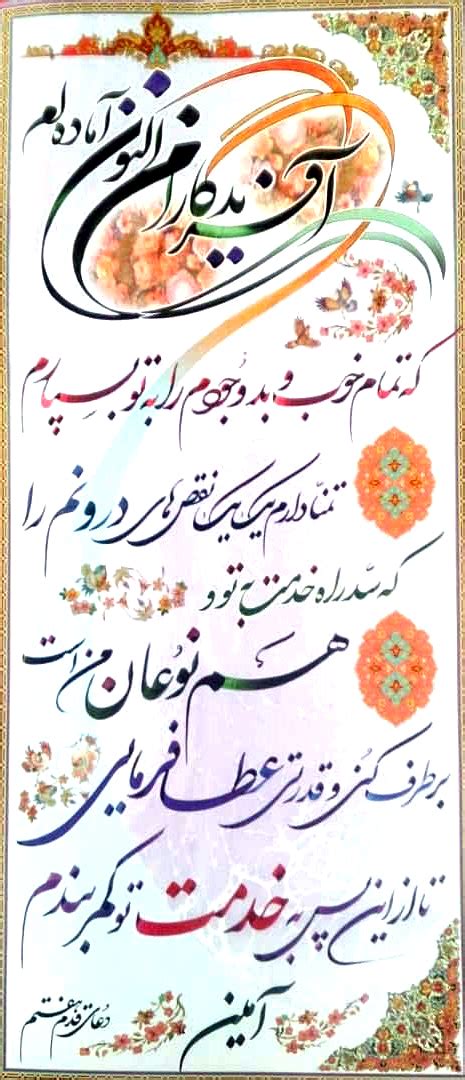 آفریدگارا من اکنون آماده‌ام
که تمام خوب و بد وجودم را به تو بسپارم
تمنّا دارم یک یک نقص‌های درونم را
که سدّ راه خدمت به تو و
هم نوعان من است
برطرف کنی و قدرتی عطا فرمایی
تا از این پس به خدمت تو کمر بندم
آمین
دعای قدم هفتم